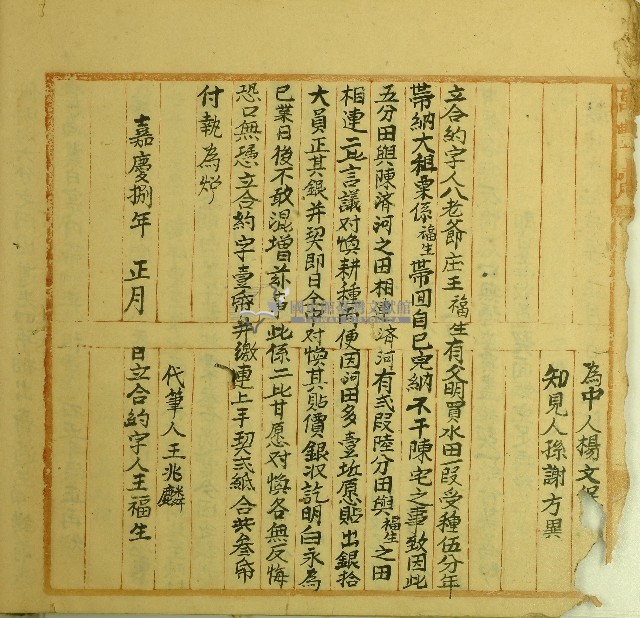 為中人楊文
知見人孫謝方異
立合約字人八老爺庄王福生有父明買水田一段受種伍分年
帶納大租粟係福生帶回自己完納不干陳宅之事致因此
五分田與陳済河之田相連済河有弍段陸分田與福生之田
相連二比言議对換耕種利便因河田多壹坵愿貼出銀拾
大員正其銀并契即日仝中对換其貼價銀收訖明白永為
己業日後不敢混增茲事此係二比甘愿对換各無反悔
恐口無憑立合約字壹帋并繳連上手契弍紙合共叁帋
付執為炤
代筆人王兆麟
嘉慶捌年 正月 日立合約字人王福生